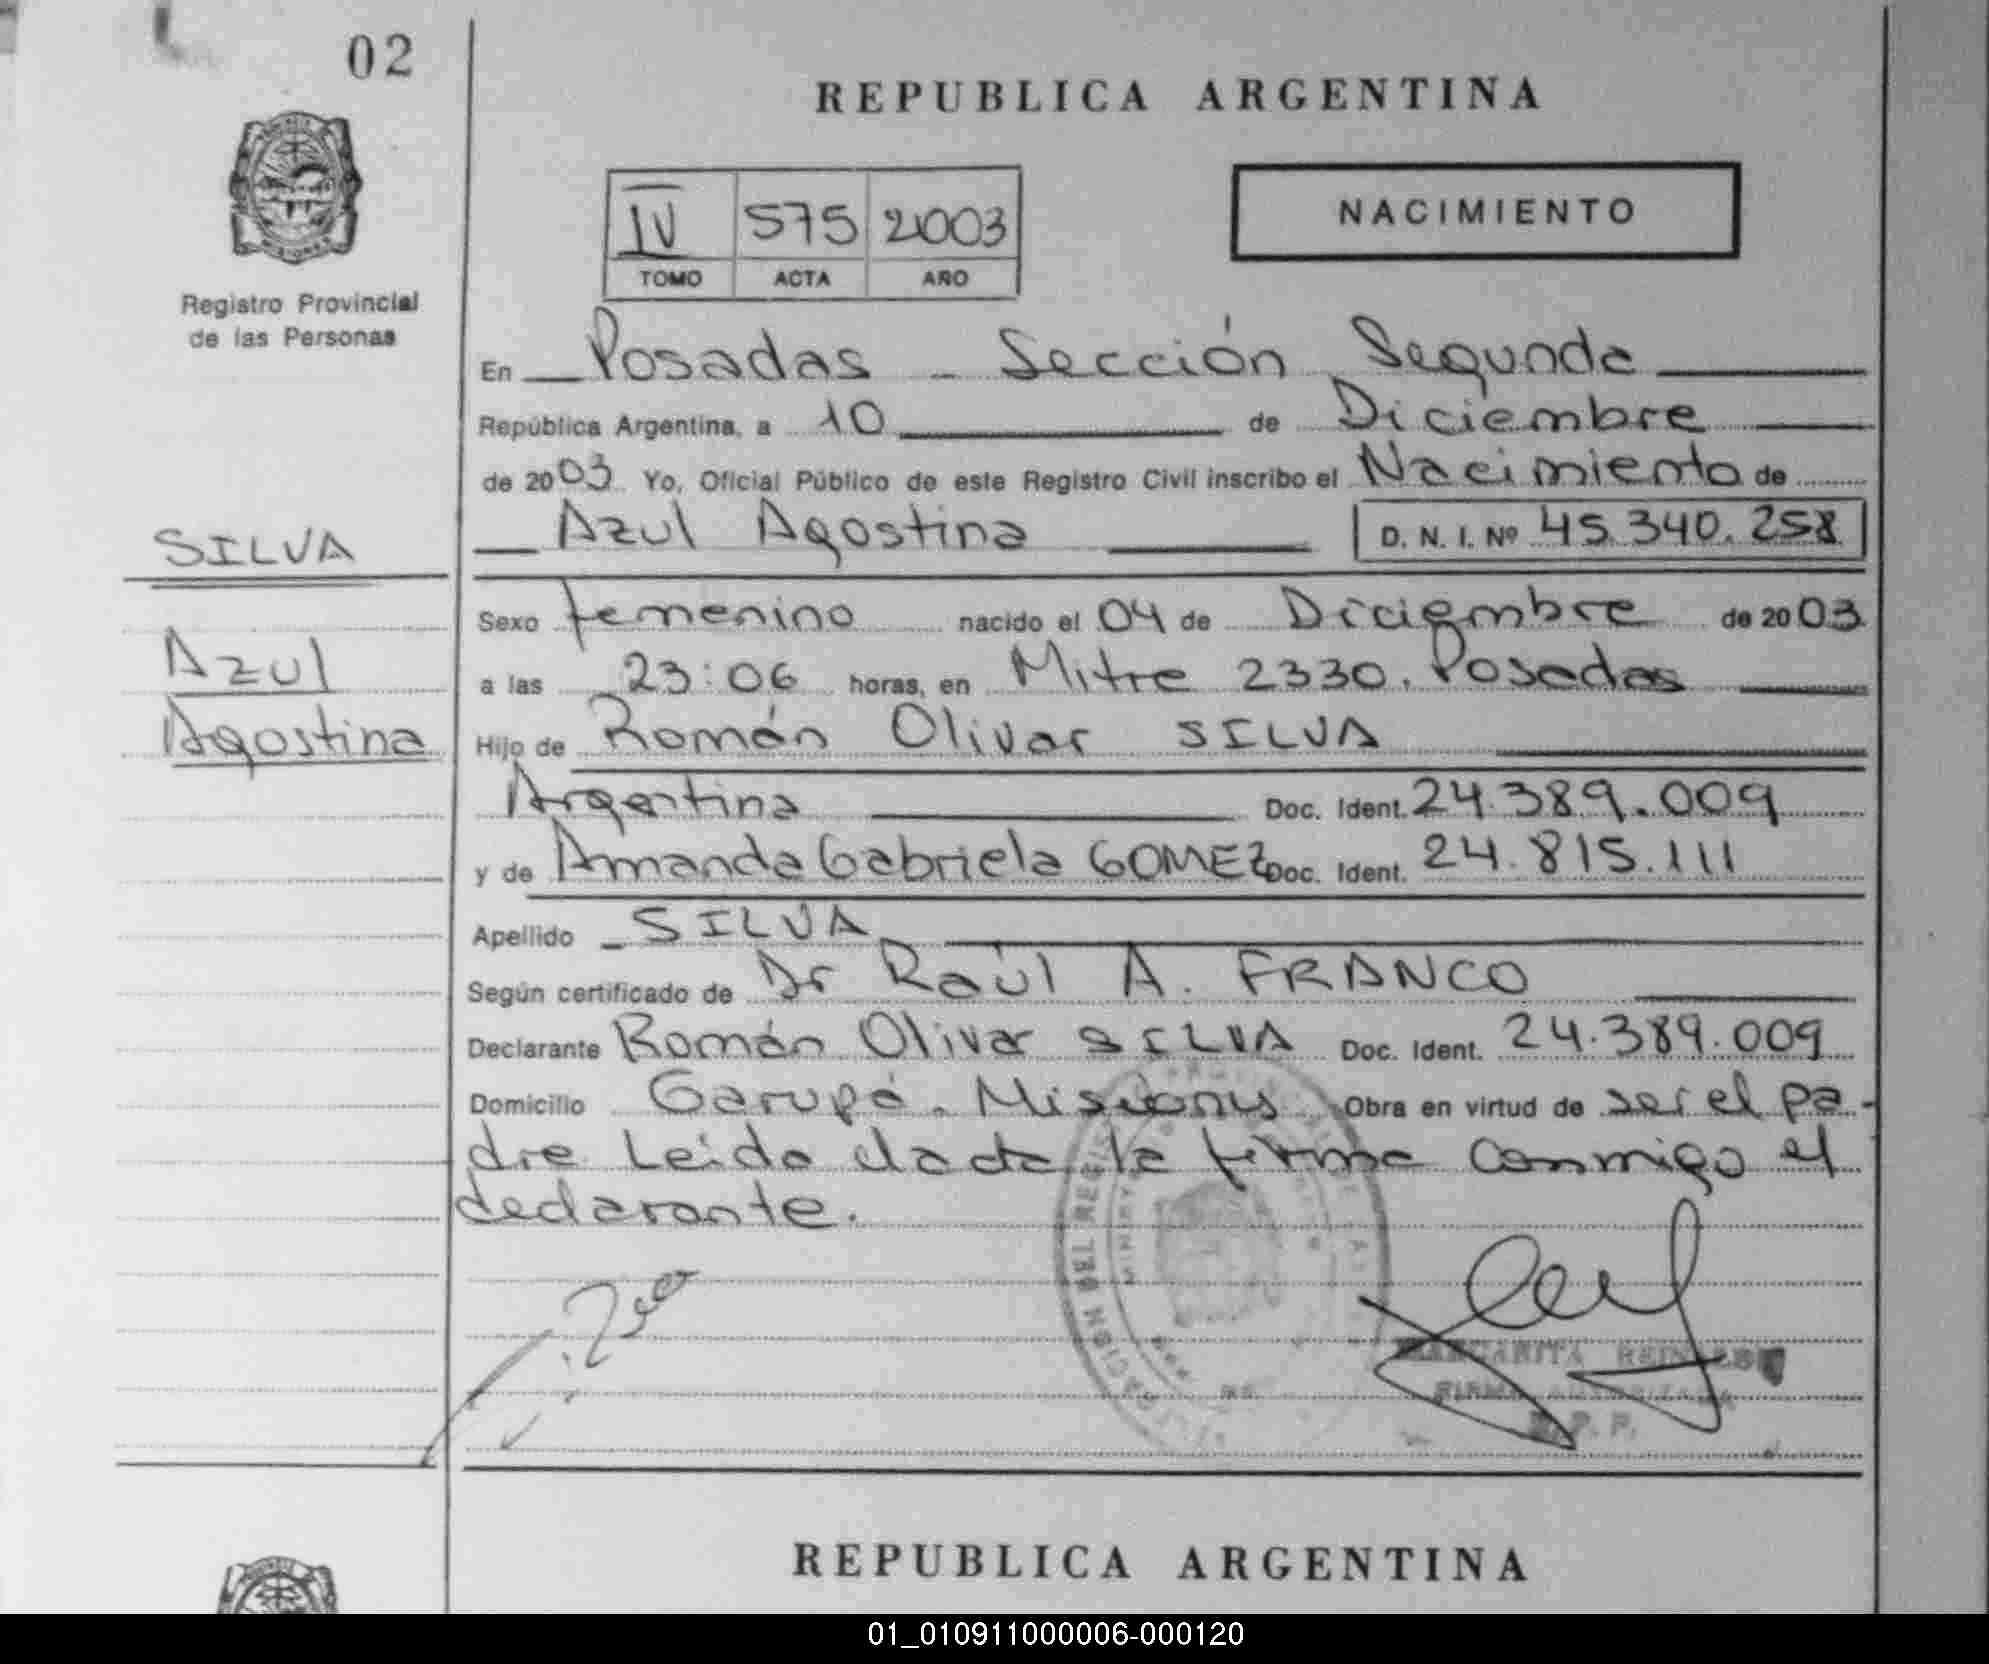 02
REPUBLICA ARGENTINA
IV 575 2003
TOMO ACTA AÑO
NACIMIENTO
Registro Provincial
de las Personas
En Posadas - Sección Segunda
República Argentina, a 10 de Diciembre
de 2003 Yo, Oficial Público de este Registro Civil inscribo el Nacimiento de
Azul Agostina D. N. I. Nº 45.340.258
SILVA
Azul
Agostina
Sexo femenino nacido el 04 de Diciembre de 2003
a las 23:06 horas, en Mitre 2330. Posadas
Hijo de Román Olivar SILVA
Argentina Doc. Ident. 24.389.009
y de Amanda Gabriela GOMEZ Doc. Ident. 24.815.111
Apellido - SILVA
Según certificado de Dr Raúl A. FRANCO
Declarante Román Olivar SILVA Doc. Ident. 24.389.009
Domicilio Garupá. Misiones Obra en virtud de ser el pa-
dre Leida el acta la firma conmigo el
declarante.
MARGARITA
FIRMA AUTORIZADA
R. P. P.
REPUBLICA ARGENTINA
01_010911000006-000120